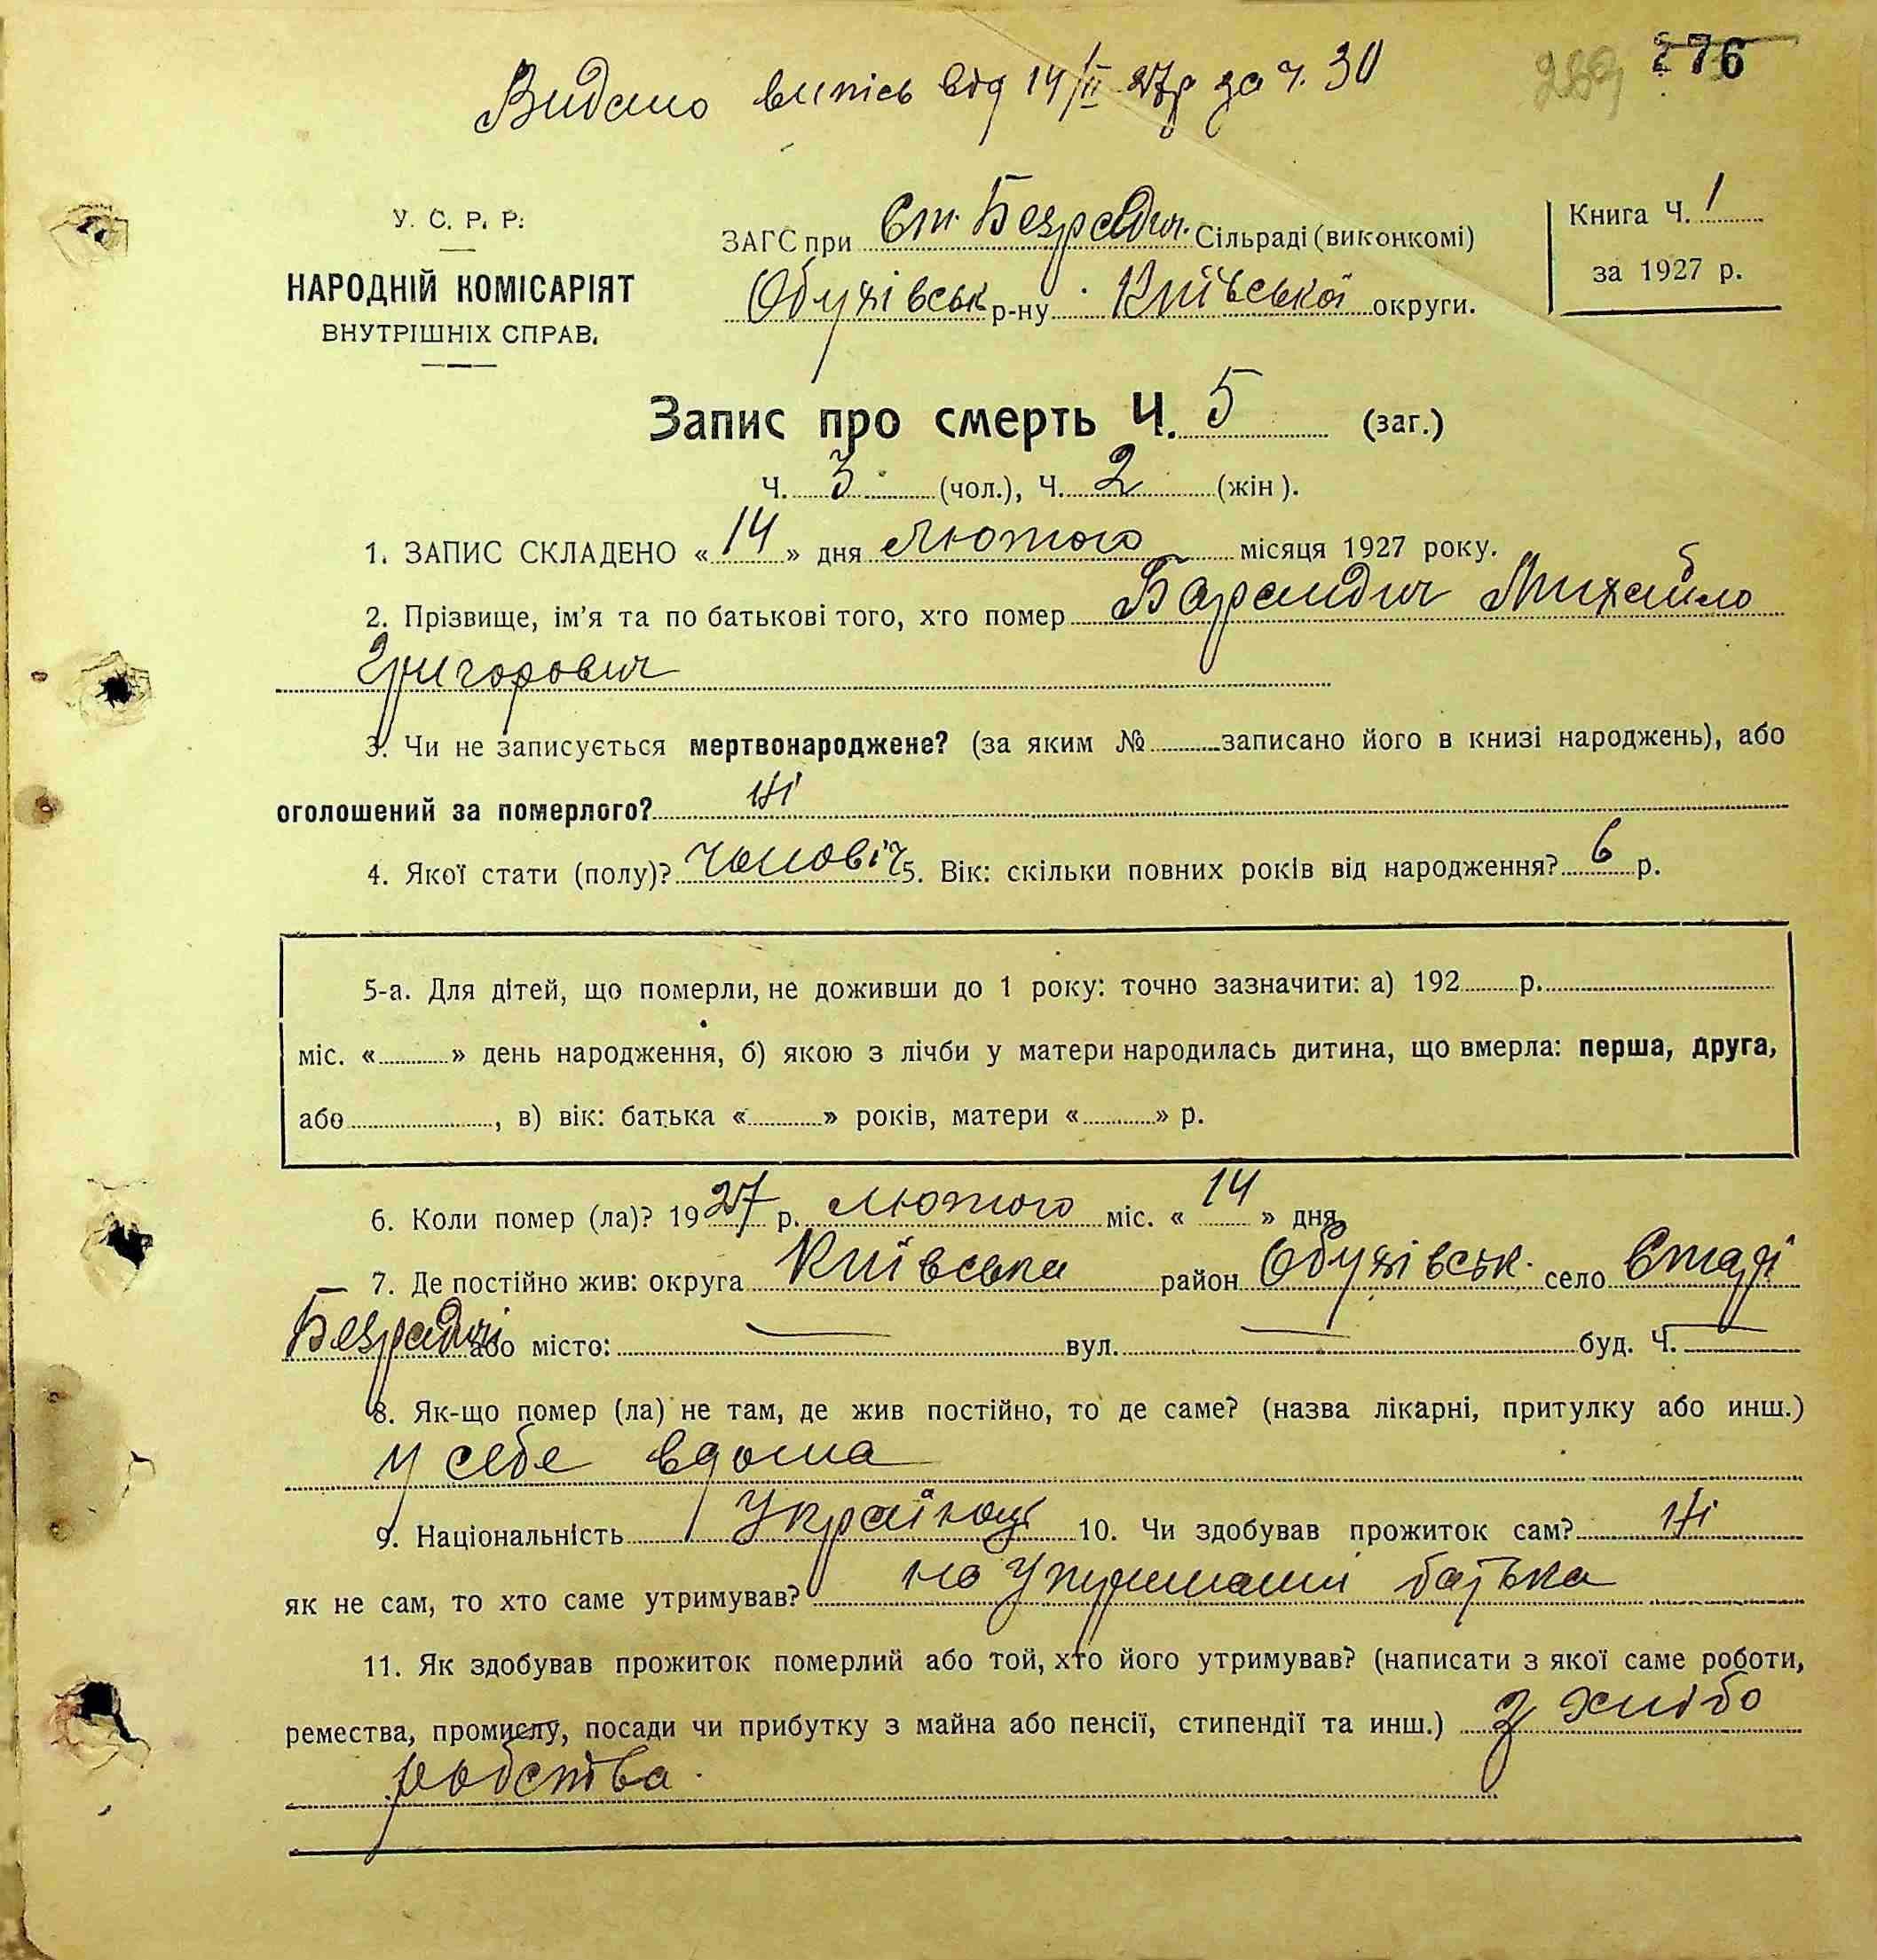 Видано випісь від 14/II 27р за ч. 30
289 276
У. С. Р. Р.
НАРОДНІЙ КОМІСАРІЯТ
ВНУТРІШНІХ СПРАВ.
ЗАГС при Ст. Безрадич. Сільраді (виконкомі)
Обухівськ р-ну Київської округи.
Книга Ч. 1
за 1927 р.
Запис про смерть Ч. 5 (заг.)
Ч. 3 (чол.), Ч. 2 (жін).
1. ЗАПИС СКЛАДЕНО «14» дня Лютого місяця 1927 року.
2. Прізвище, ім’я та по батькові того, хто помер Барандич Михайло
Григорович
3. Чи не записується мертвонароджене? (за яким № записано його в книзі народжень), або
оголошений за померлого? ні
4. Якої стати (полу)? чоловіч 5. Вік: скільки повних років від народження? 6 р.
5-а. Для дітей, що померли, не доживши до 1 року: точно зазначити: а) 192 р.
міс. « » день народження, б) якою з лічби у матери народилась дитина, що вмерла: перша, друга,
або , в) вік: батька « » років, матери « » р.
6. Коли помер (ла)? 1927 р. лютого міс. «14» дня
7. Де постійно жив: округа Київська район Обухівськ. село Старі
Безрадичі або місто: — вул. — буд. Ч. —
8. Як-що помер (ла) не там, де жив постійно, то де саме? (назва лікарні, притулку або инш.)
у себе вдома
9. Національність Українец 10. Чи здобував прожиток сам? ні
як не сам, то хто саме утримував? на утриманні батька
11. Як здобував прожиток померлий або той, хто його утримував? (написати з якої саме роботи,
ремества, промислу, посади чи прибутку з майна або пенсії, стипендії та инш.) з хлібо
робства.